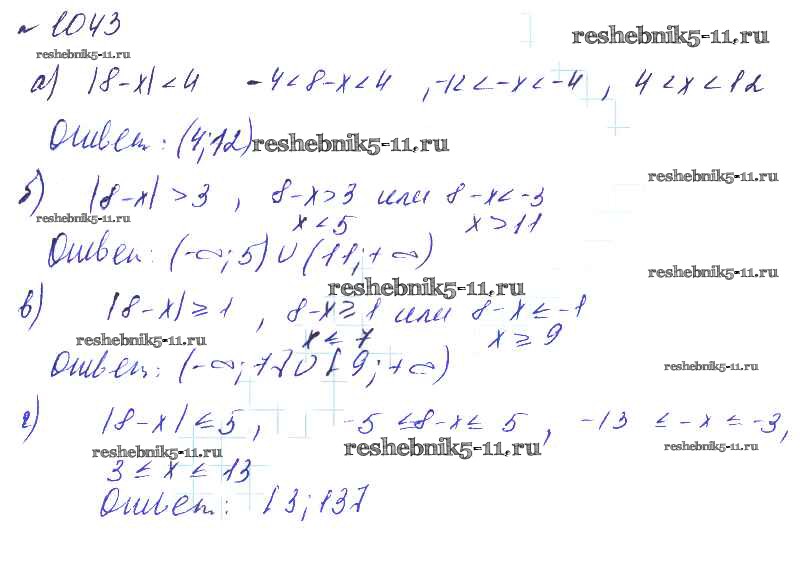 № 1043
reshebnik5-11.ru
reshebnik5-11.ru
а) |8-x|<4 -4<8-x<4, -12<-x<-4, 4<x<12
Ответ: (4;12)
reshebnik5-11.ru
reshebnik5-11.ru
б) |8-x|>3, 8-x>3 или 8-x<-3
reshebnik5-11.ru
x<5 x>11
Ответ: (-∞;5)∪(11;+∞)
reshebnik5-11.ru
reshebnik5-11.ru
в) |8-x|≥1, 8-x≥1 или 8-x≤-1
reshebnik5-11.ru
x≤7 x≥9
Ответ: (-∞;7]∪[9;+∞)
reshebnik5-11.ru
г) |8-x|≤5, -5≤8-x≤5, -13≤-x≤-3,
reshebnik5-11.ru
reshebnik5-11.ru
reshebnik5-11.ru
3≤x≤13
Ответ: [3;13]